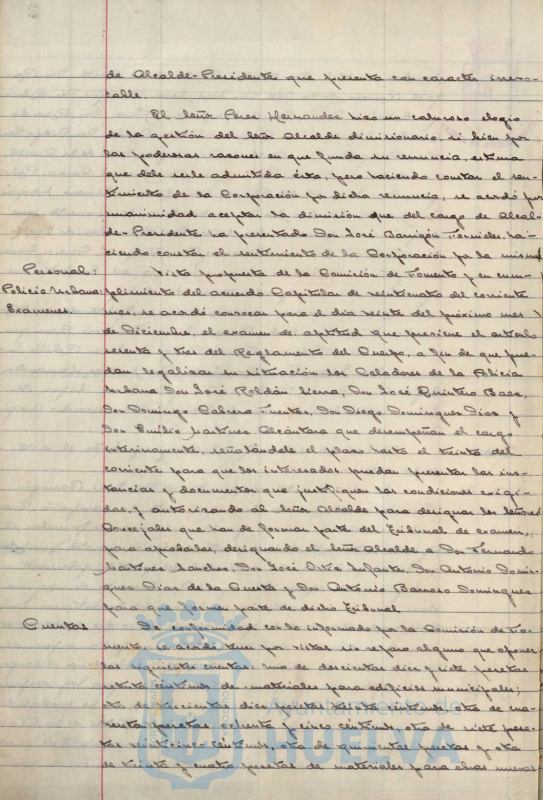 de Alcalde-Presidente que presenta con caracter irrevo-
cable.
El Señor Perez Hernandez hizo un caluroso elogio
de la gestión del Señor Alcalde dimisionario, si bien por
las poderosas razones en que funda su renuncia, estima
que debe serle admitida ésta, pero haciendo constar el sen-
timiento de la Corporación por dicha renuncia, se acordó por
unanimidad aceptar la dimisión que del cargo de Alcal-
de-Presidente ha presentado Don José Barrigón Fornieles, ha-
ciendo constar el sentimiento de la Corporación por la misma
Personal:
Policía Urbana:
Examenes.
Vista propuesta de la Comisión de Fomento y en cum-
plimiento del acuerdo Capitular de veinticuatro del corriente
mes, se acordó convocar para el día veinte del próximo mes
de Diciembre, el examen de aptitud que previene el artículo
sesenta y tres del Reglamento del Cuerpo, a fin de que pue-
dan legalizar su situación los Celadores de la Policía
Urbana Don José Roldán Sierra, Don José Quintero Baez,
Don Domingo Cabrera Fuentes, Don Diego Dominguez Diaz y
Don Emilio Martinez Alcántara que desempeñan el cargo
interinamente, señalándole el plazo hasta el treinta del
corriente para que los interesados puedan presentar las ins-
tancias y documentos que justifiquen las condiciones exigi-
das, y autorizando al Señor Alcalde para designar los Señores
Concejales que han de formar parte del Tribunal de examen,
para aprobarlas, designando el Señor Alcalde a Don Fernando
Martinez Sanchez, Don José Ortiz Infante, Don Antonio Domin-
guez Diaz de la Cuesta y Don Antonio Barroso Dominguez
para que formen parte de dicho Tribunal
Cuentas
De conformidad con lo informado por la Comisión de Fo-
mento, se acordó tener por vistas sin reparo alguno que oponer
las siguientes cuentas: una de doscientas diez y siete pesetas
céntimos de materiales para edificios municipales;
otra de trescientas diez pesetas treinta céntimos, otra de cua-
renta pesetas ochenta y cinco céntimos, otra de siete pese-
tas veinticinco céntimos, otra de quinientas pesetas y otra
de treinta y cuatro pesetas de materiales para obras nuevas
Ayuntamiento de
HUELVA